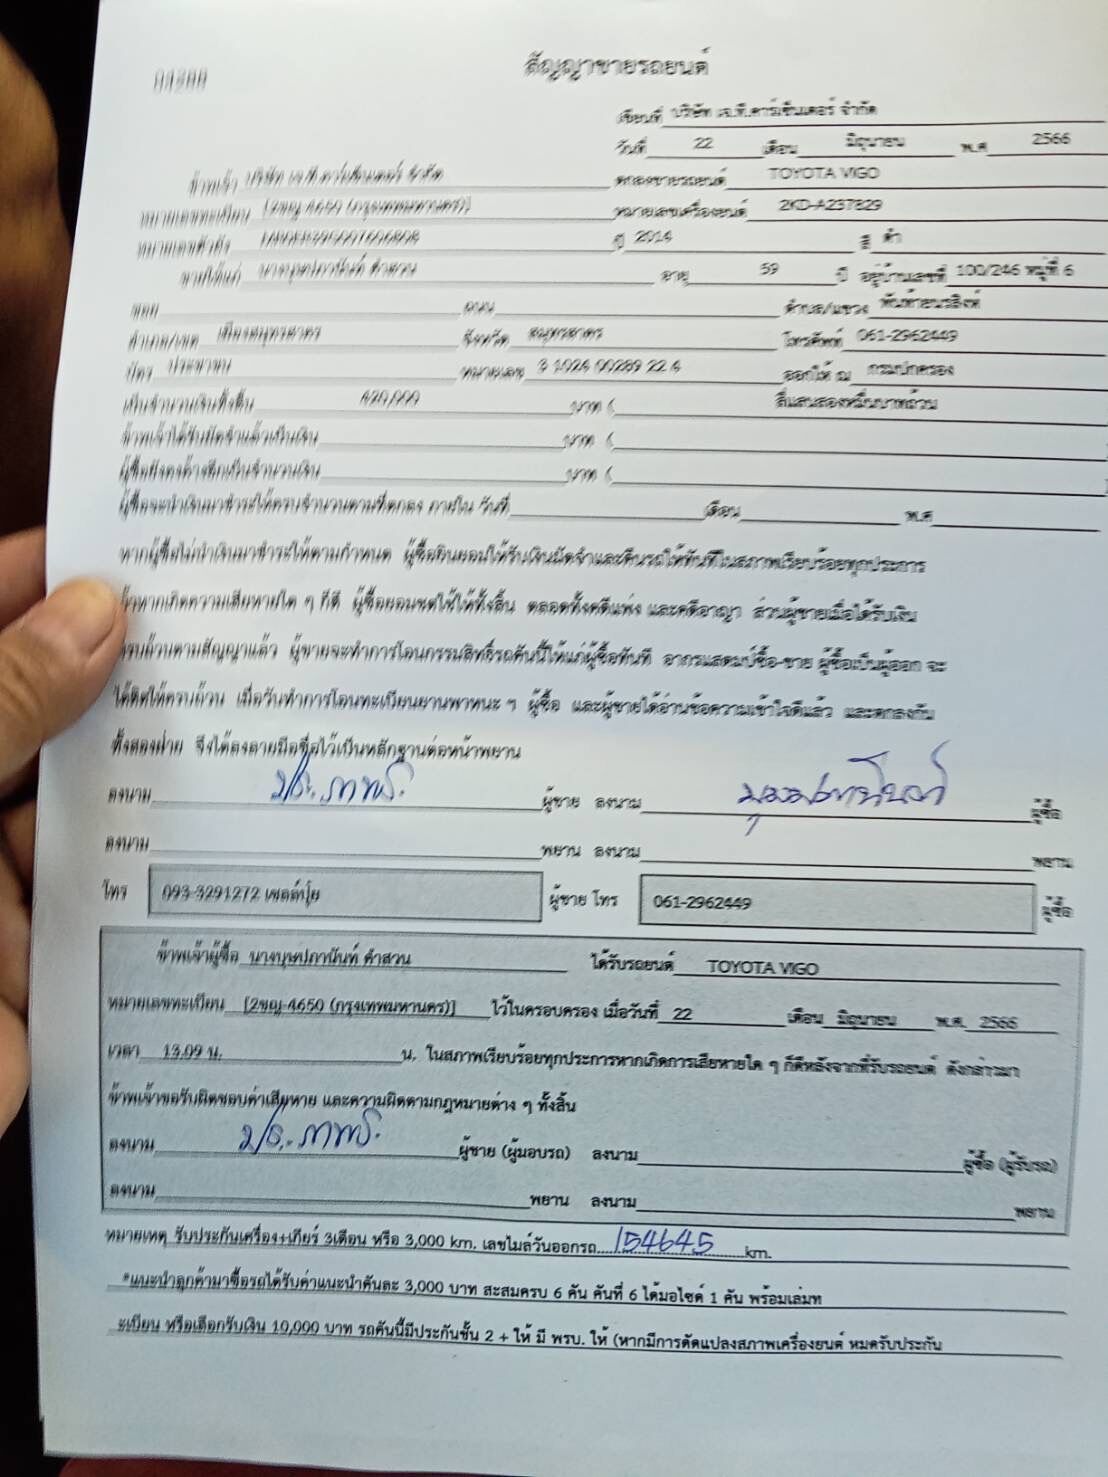 สัญญาขายรถยนต์
เขียนที่ บริษัท เจ.ที.คาร์เซ็นเตอร์ จำกัด
วันที่ 22 เดือน มิถุนายน พ.ศ. 2566
ข้าพเจ้า บริษัท เจ.ที.คาร์เซ็นเตอร์ จำกัด ตกลงขายรถยนต์ TOYOTA VIGO
หมายเลขทะเบียน [2ขญ-4650 (กรุงเทพมหานคร)] หมายเลขเครื่องยนต์ 2KD-A237829
หมายเลขตัวถัง ปี 2014 สี ดำ
ขายให้แก่ นางบุษปภานันท์ คำสวน อายุ 59 ปี อยู่บ้านเลขที่ 100/246 หมู่ที่ 6
ซอย ถนน ตำบล/แขวง พันท้ายนรสิงห์
อำเภอ/เขต เมืองสมุทรสาคร จังหวัด สมุทรสาคร โทรศัพท์ 061-2962449
บัตร ประชาชน หมายเลข 3 1024 00289 22 4 ออกให้ ณ กรมปกครอง
เป็นจำนวนเงินทั้งสิ้น 420,000 บาท ( สี่แสนสองหมื่นบาทถ้วน
ข้าพเจ้าได้รับมัดจำแล้วเป็นเงิน บาท (
ผู้ซื้อยังคงค้างอีกเป็นจำนวนเงิน บาท (
ผู้ซื้อจะนำเงินมาชำระให้ครบจำนวนตามที่ตกลง ภายใน วันที่ เดือน พ.ศ
หากผู้ซื้อไม่นำเงินมาชำระให้ตามกำหนด ผู้ซื้อยินยอมให้รับเงินมัดจำและคืนรถให้ทันทีในสภาพเรียบร้อยทุกประการ
ถ้าหากเกิดความเสียหายใด ๆ ก็ดี ผู้ซื้อยอมชดใช้ให้ทั้งสิ้น ตลอดทั้งคดีแพ่ง และคดีอาญา ส่วนผู้ขายเมื่อได้รับเงิน
ครบถ้วนตามสัญญาแล้ว ผู้ขายจะทำการโอนกรรมสิทธิ์รถคันนี้ให้แก่ผู้ซื้อทันที อากรแสตมป์ซื้อ-ขาย ผู้ซื้อเป็นผู้ออก จะ
ได้ติดให้ครบถ้วน เมื่อวันทำการโอนทะเบียนยานพาหนะ ๆ ผู้ซื้อ และผู้ขายได้อ่านข้อความเข้าใจดีแล้ว และตกลงกัน
ทั้งสองฝ่าย จึงได้ลงลายมือชื่อไว้เป็นหลักฐานต่อหน้าพยาน
ลงนาม ผู้ขาย ลงนาม ผู้ซื้อ
ลงนาม พยาน ลงนาม พยาน
โทร 093-3291272 เซลล์ปุ๋ย ผู้ขาย โทร 061-2962449 ผู้ซื้อ
ข้าพเจ้าผู้ซื้อ นางบุษปภานันท์ คำสวน ได้รับรถยนต์ TOYOTA VIGO
หมายเลขทะเบียน [2ขญ-4650 (กรุงเทพมหานคร)] ไว้ในครอบครอง เมื่อวันที่ 22 เดือน มิถุนายน พ.ศ. 2566
เวลา 13.09 น. น. ในสภาพเรียบร้อยทุกประการหากเกิดการเสียหายใด ๆ ก็ดีหลังจากที่รับรถยนต์ ดังกล่าวมา
ข้าพเจ้าขอรับผิดชอบค่าเสียหาย และความผิดตามกฎหมายต่าง ๆ ทั้งสิ้น
ลงนาม ผู้ขาย (ผู้มอบรถ) ลงนาม ผู้ซื้อ (ผู้รับรถ)
ลงนาม พยาน ลงนาม พยาน
หมายเหตุ รับประกันเครื่อง+เกียร์ 3เดือน หรือ 3,000 km. เลขไมล์วันออกรถ 154645 km.
*แนะนำลูกค้ามาซื้อรถได้รับค่าแนะนำคันละ 3,000 บาท สะสมครบ 6 คัน คันที่ 6 ได้มอไซค์ 1 คัน พร้อมเล่มท
ะเบียน หรือเลือกรับเงิน 10,000 บาท รถคันนี้มีประกันชั้น 2 + ให้ มี พรบ. ให้ (หากมีการดัดแปลงสภาพเครื่องยนต์ หมดรับประกัน